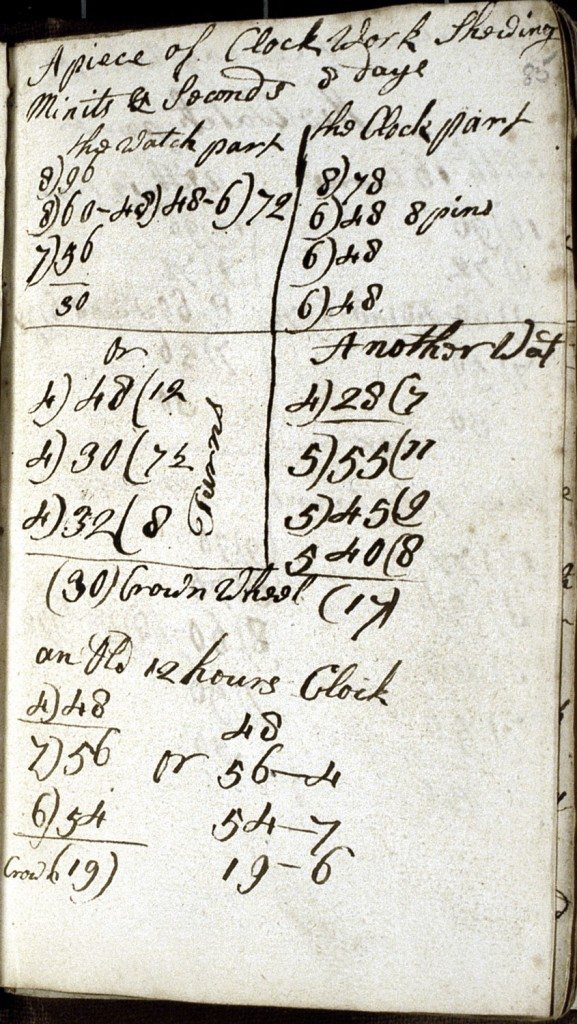 A piece of Clock Work Shewing
Minits & Seconds 8 days
85
the Watch part
8)96
8)60-48)48-6)72
7)56
30
the Clock part
8)78
6)48 8 pins
6)48
6)48
or
4)48(12
4)30(7½
4)32(8
Turns
(30) Crown Wheel
Another Wat
4)28(7
5)55(11
5)45(9
5 40(8
(17)
an Old 12 hours Clock
4)48
7)56
6)54
Crow(19)
or
48
56-4
54-7
19-6